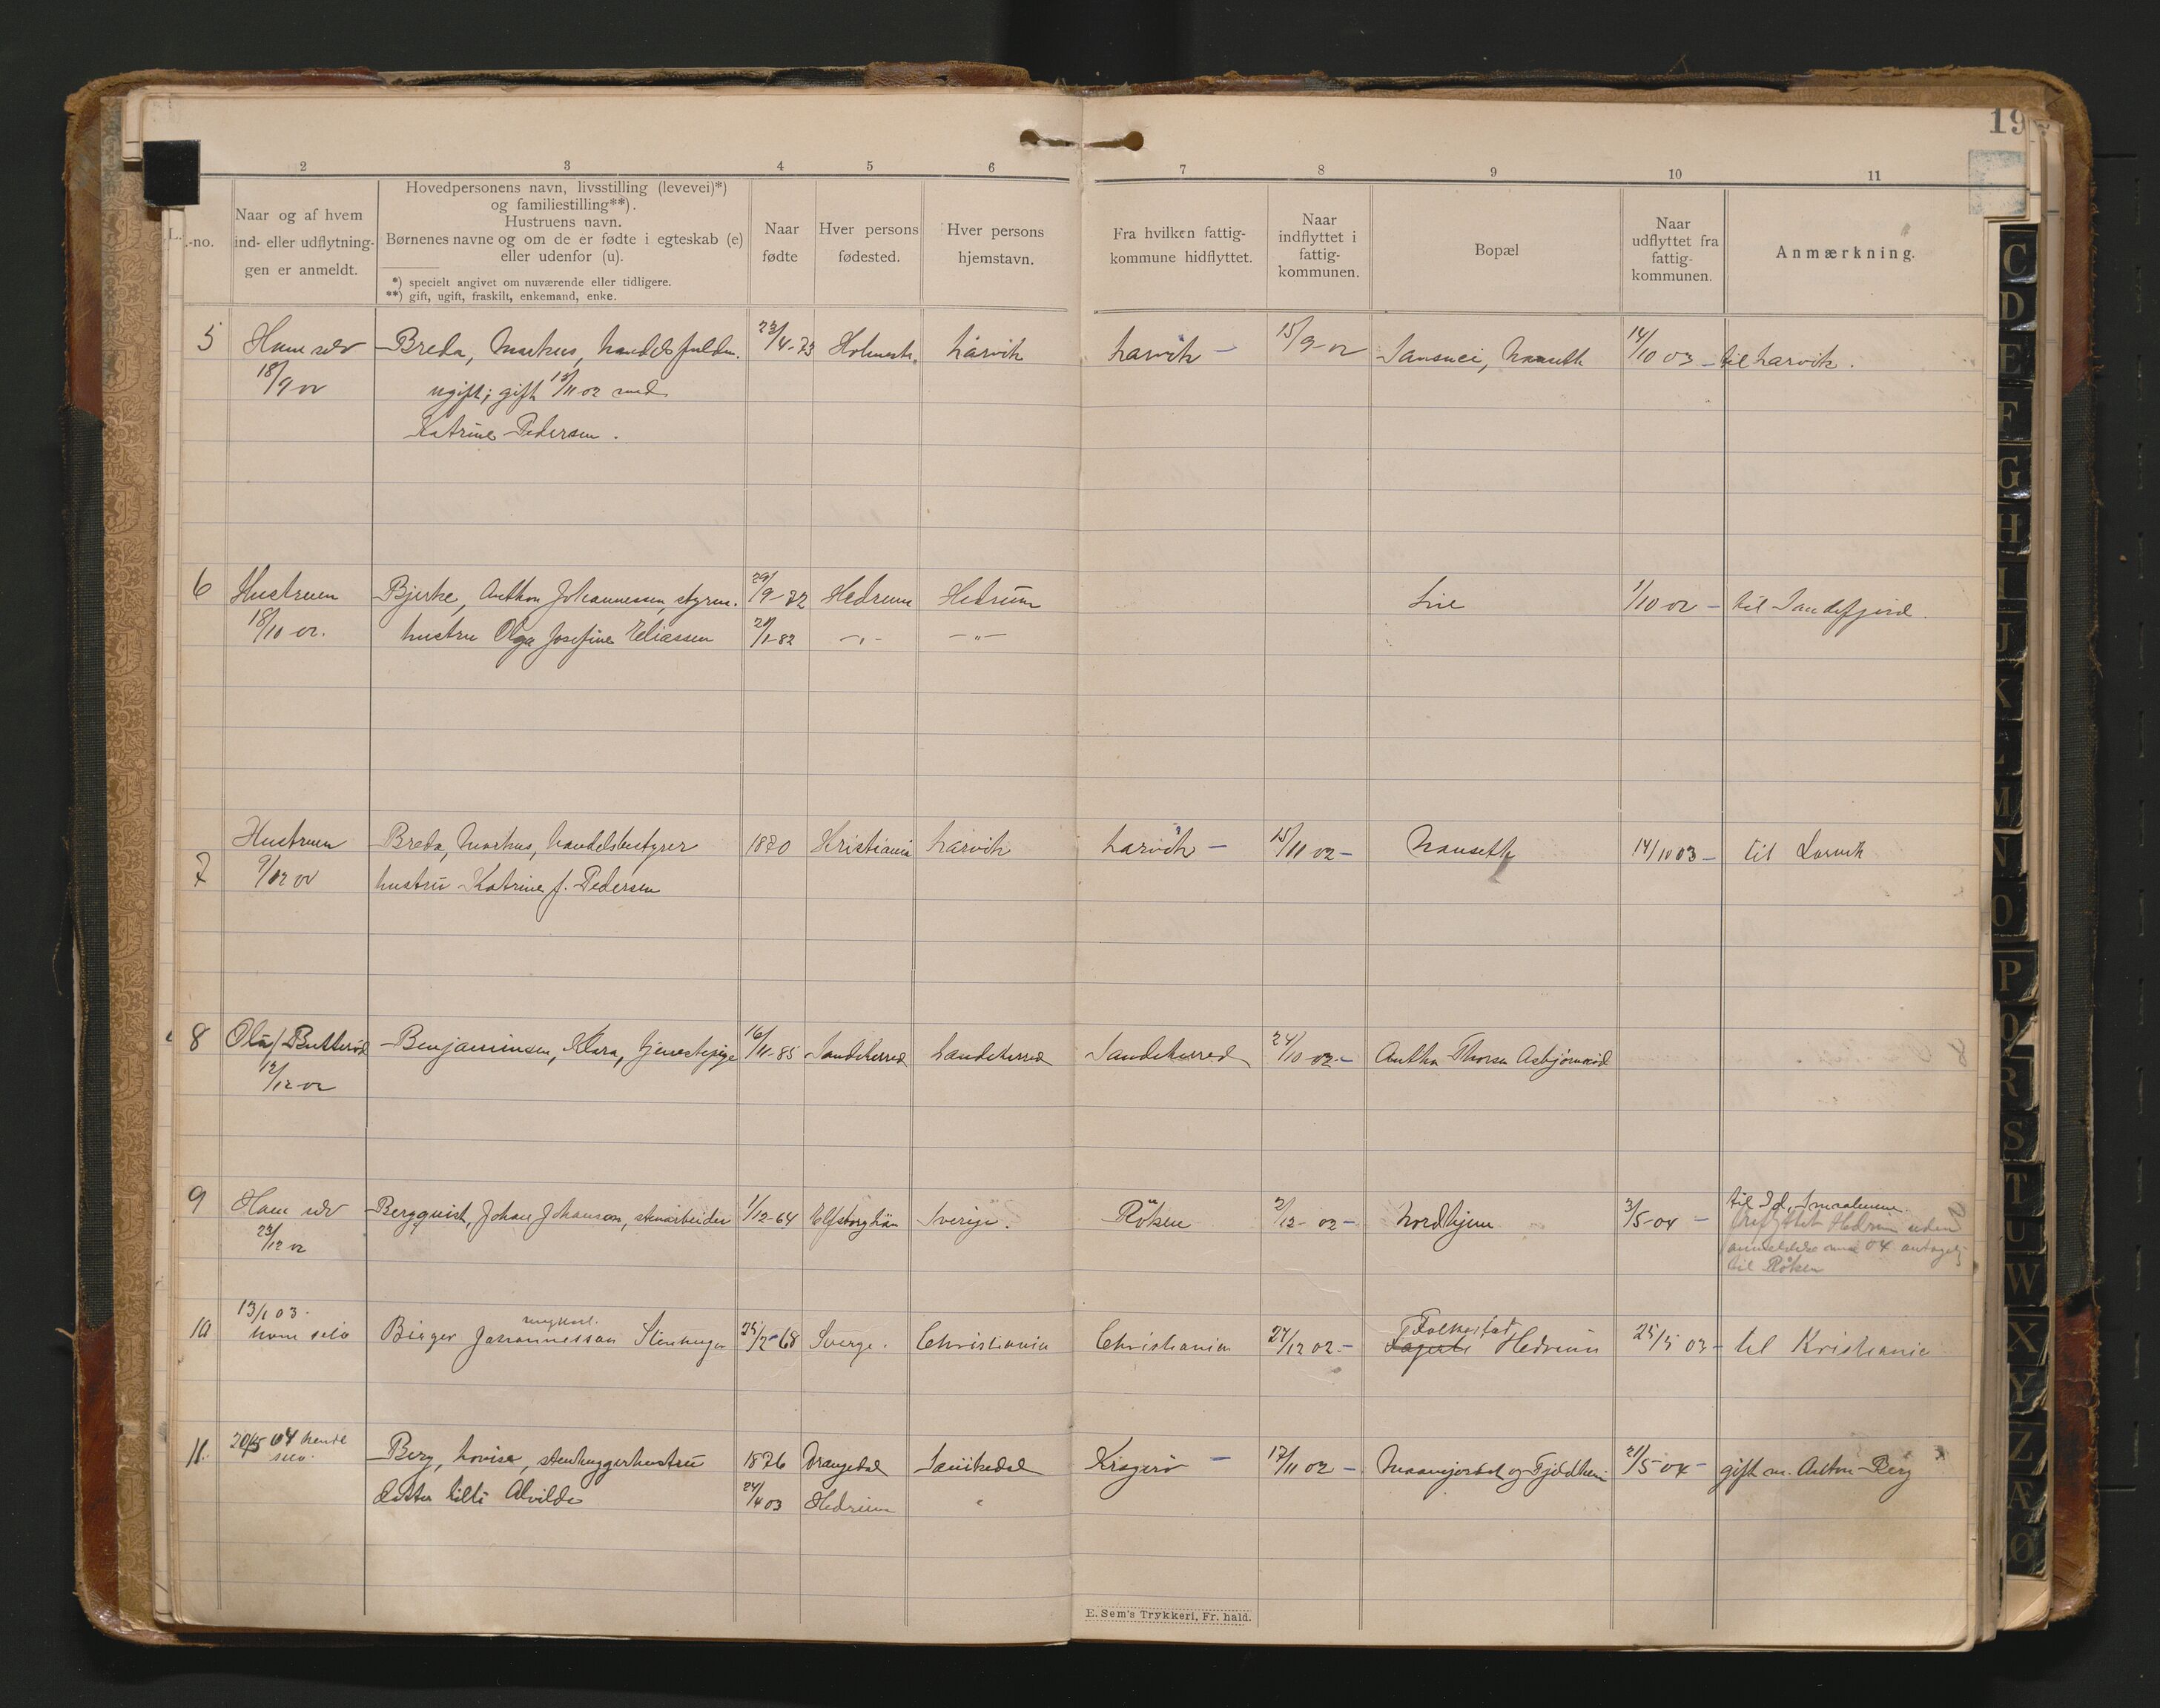 19
2 3 4 5 6 7 8 9 10 11
L.-no.
Naar og af hvem
ind- eller udflytnin-
gen er anmeldt.
Hovedpersonens navn, livsstilling (levevei)*)
og familiestilling**).
Hustruens navn.
Børnenes navne og om de er fødte i egteskab (e)
eller udenfor (u).
*) specielt angivet om nuværende eller tidligere.
**) gift, ugift, fraskilt, enkemand, enke.
Naar
fødte
Hver persons
fødested.
Hver persons
hjemstavn.
Fra hvilken fattig-
kommune hidflyttet.
Naar
indflyttet i
fattig-
kommunen.
Bopæl
Naar
udflyttet fra
fattig-
kommunen.
Anmærkning.
5 Ham selv Breda, Markus, handelsfuldm. 23/4-73 Holmestr. Larvik Larvik 15/9-02 Nanseth 14/10 03 til Larvik.
18/9 02 ugift; gift 15/11 02 med
Katrine Pedersen.
6 Hustruen Bjerke, Anthon Johannessen, styrm. 29/9-72 Hedrum Hedrum Lie 1/10 02 til Sandefjord.
18/10 02. hustru Olga Josefine Eliassen 20/1-82 -"- -"-
7 Hustruen Breda, Markus, handelsbestyrer 1870 Kristiania Larvik Larvik 15/11 02 Nanseth 14/10 03 til Larvik
9/12 02 hustru Katrine f. Pedersen
8 Ola Butterød Benjaminsen, Klara, tjenestepige 16/11-85 Sandeherred Sandeherred Sandeherred 24/10 02 Anthon Thorsen Asbjørnrød
12/12 02
9 Ham selv Bergquist, Johan Johanson, stenarbeider 1/12-64 Elfsborglän Sverige. Röken 2/12-02 Nordhjem 3/5-04 til Id, Smaalenene.
23/12 02 Udflyttet Hedrum uden
anmeldelse 04 antagelig
til Röken
10 13/1 03. ham selv Birger Johannesson Stenhugger 25/2-68 Sverge. Christiania Christiania 27/12 02. Folkestad Hedrum 25/5 03 til Kristiania
ungkarl.
11. 20/5 04 hende Berg, Lovise, stenhuggerhustru 1876 Drangedal Sanikedal Kragerø 17/11 02 og Fjeldheim 21/5-04 gift m. Anton Berg
selv. datter Lilli Alvilde 24/4 03 Hedrum "
E. Sem's Trykkeri, Fr. hald.
C
D
E
F
G
H
I
J
K
L
M
N
O
P
Q
R
S
T
U
W
X
Y
Z
Æ
Ø